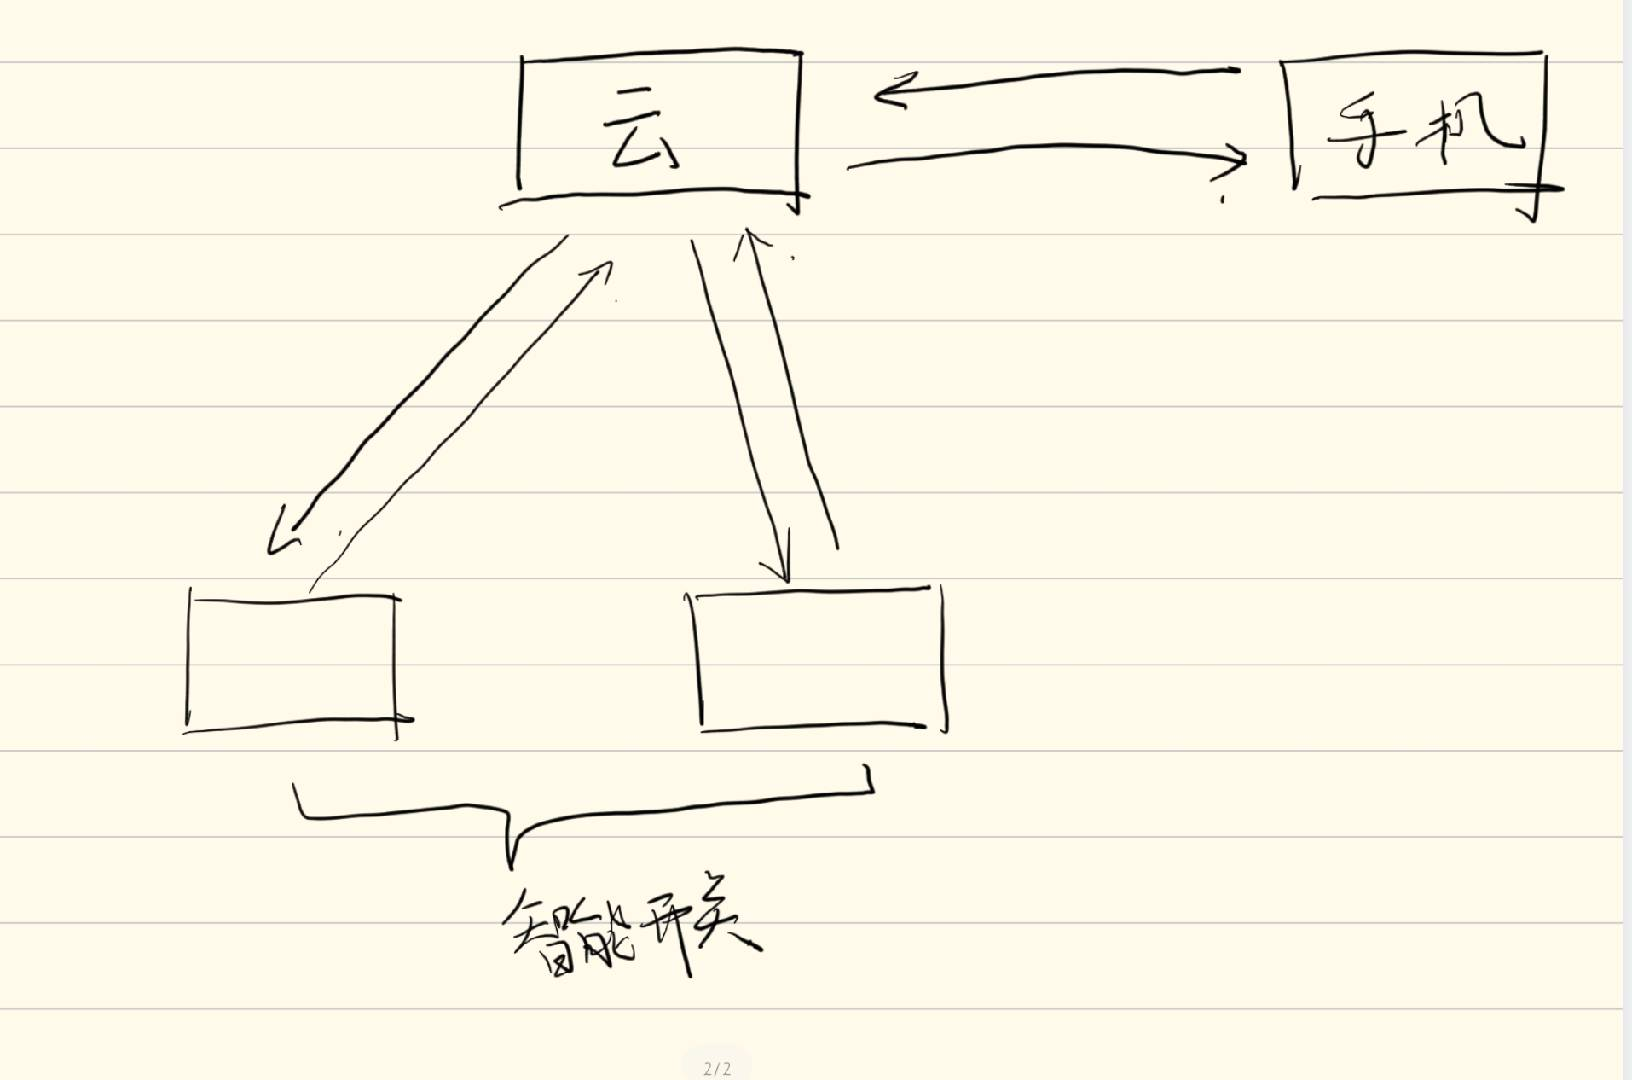 云
手机
智能开关
2/2